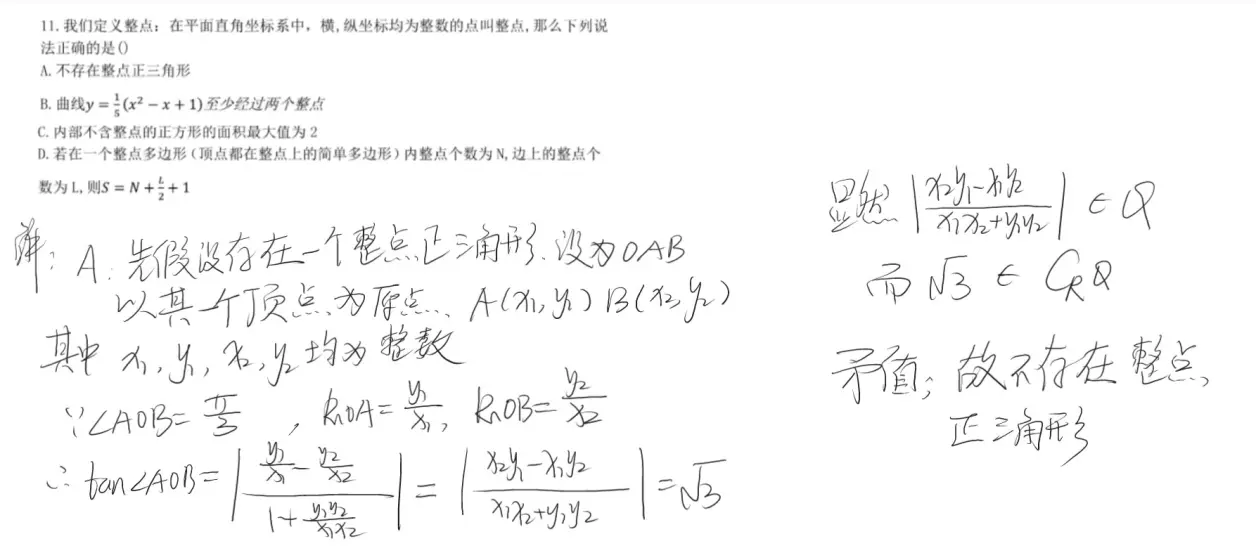 11. 我们定义整点：在平面直角坐标系中，横,纵坐标均为整数的点叫整点,那么下列说
法正确的是()
A. 不存在整点正三角形
B. 曲线y = 1/5(x² − x + 1)至少经过两个整点
C. 内部不含整点的正方形的面积最大值为 2
D. 若在一个整点多边形（顶点都在整点上的简单多边形）内整点个数为 N,边上的整点个
数为 L, 则S = N + L/2 + 1
解： A: 先假设存在一个整点正三角形. 设为OAB
以其一个顶点为原点、 A(x₁, y₁) B(x₂, y₂)
其中 x₁, y₁, x₂, y₂ 均为整数
∵∠AOB = π/3 , kOA = y₁/x₁, kOB = y₂/x₂
∴ tan∠AOB = |(y₁/x₁ − y₂/x₂)/(1 + y₁y₂/x₁x₂)| = |(x₂y₁ − x₁y₂)/(x₁x₂ + y₁y₂)| = √3
显然 |(x₂y₁ − x₁y₂)/(x₁x₂ + y₁y₂)| ∈ Q
而 √3 ∈ ∁RQ
矛盾; 故不存在整点
正三角形